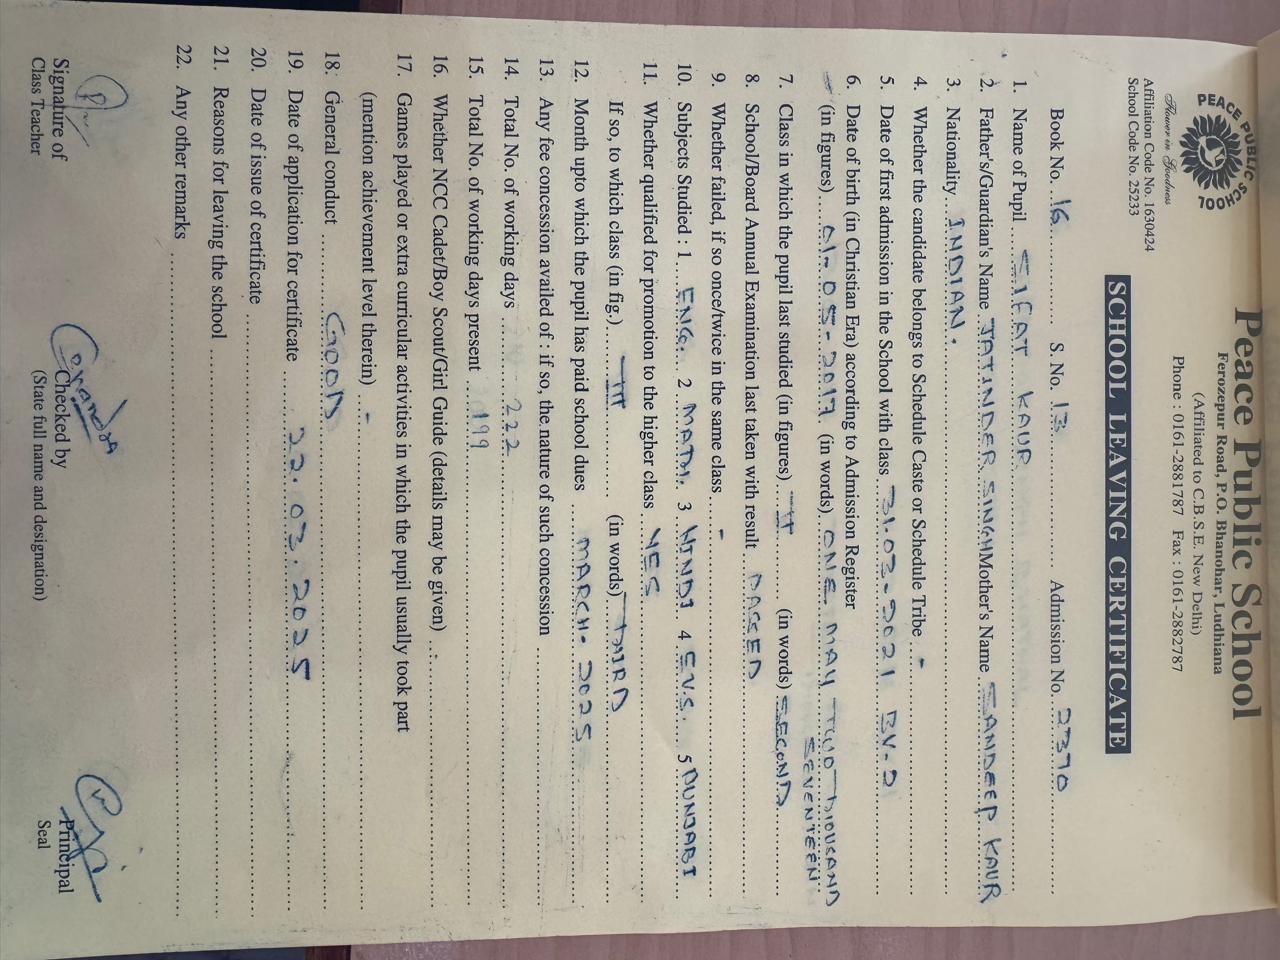 PEACE PUBLIC SCHOOL
Flower in Goodness
Peace Public School
Ferozepur Road, P.O. Bhanohar, Ludhiana
(Affiliated to C.B.S.E. New Delhi)
Phone : 0161-2881787 Fax : 0161-2882787
Affiliation Code No. 1630424
School Code No. 25233
SCHOOL LEAVING CERTIFICATE
Book No. 16 S. No. 13 Admission No. 2370
1. Name of Pupil SIFAT KAUR
2. Father's/Guardian's Name JATINDER SINGH Mother's Name SANDEEP KAUR
3. Nationality INDIAN.
4. Whether the candidate belongs to Schedule Caste or Schedule Tribe -
5. Date of first admission in the School with class 31.03.2021 BV-2
6. Date of birth (in Christian Era) according to Admission Register
(in figures) 01-05-2017 (in words) ONE MAY TWO THOUSAND
SEVENTEEN
7. Class in which the pupil last studied (in figures) II (in words) SECOND
8. School/Board Annual Examination last taken with result PASSED
9. Whether failed, if so once/twice in the same class -
10. Subjects Studied : 1 ENG. 2 MATH. 3 HINDI 4 E.V.S. 5 PUNJABI
11. Whether qualified for promotion to the higher class YES
If so, to which class (in fig.) III (in words) THIRD
12. Month upto which the pupil has paid school dues MARCH- 2025
13. Any fee concession availed of : if so, the nature of such concession
14. Total No. of working days 222
15. Total No. of working days present 199
16. Whether NCC Cadet/Boy Scout/Girl Guide (details may be given)
17. Games played or extra curricular activities in which the pupil usually took part
(mention achievement level therein) -
18. General conduct GOOD
19. Date of application for certificate 22.03.2025
20. Date of issue of certificate
21. Reasons for leaving the school
22. Any other remarks
Signature of Checked by Principal
Class Teacher (State full name and designation) Seal